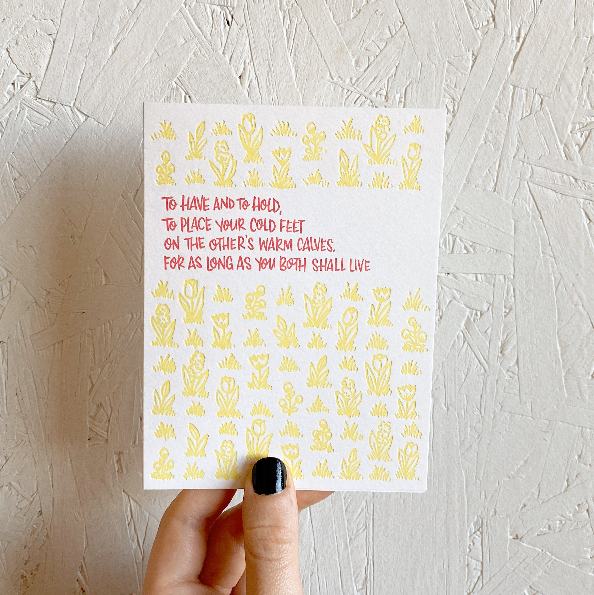 TO HAVE AND TO HOLD,
TO PLACE YOUR COLD FEET
ON THE OTHER'S WARM CALVES,
FOR AS LONG AS YOU BOTH SHALL LIVE